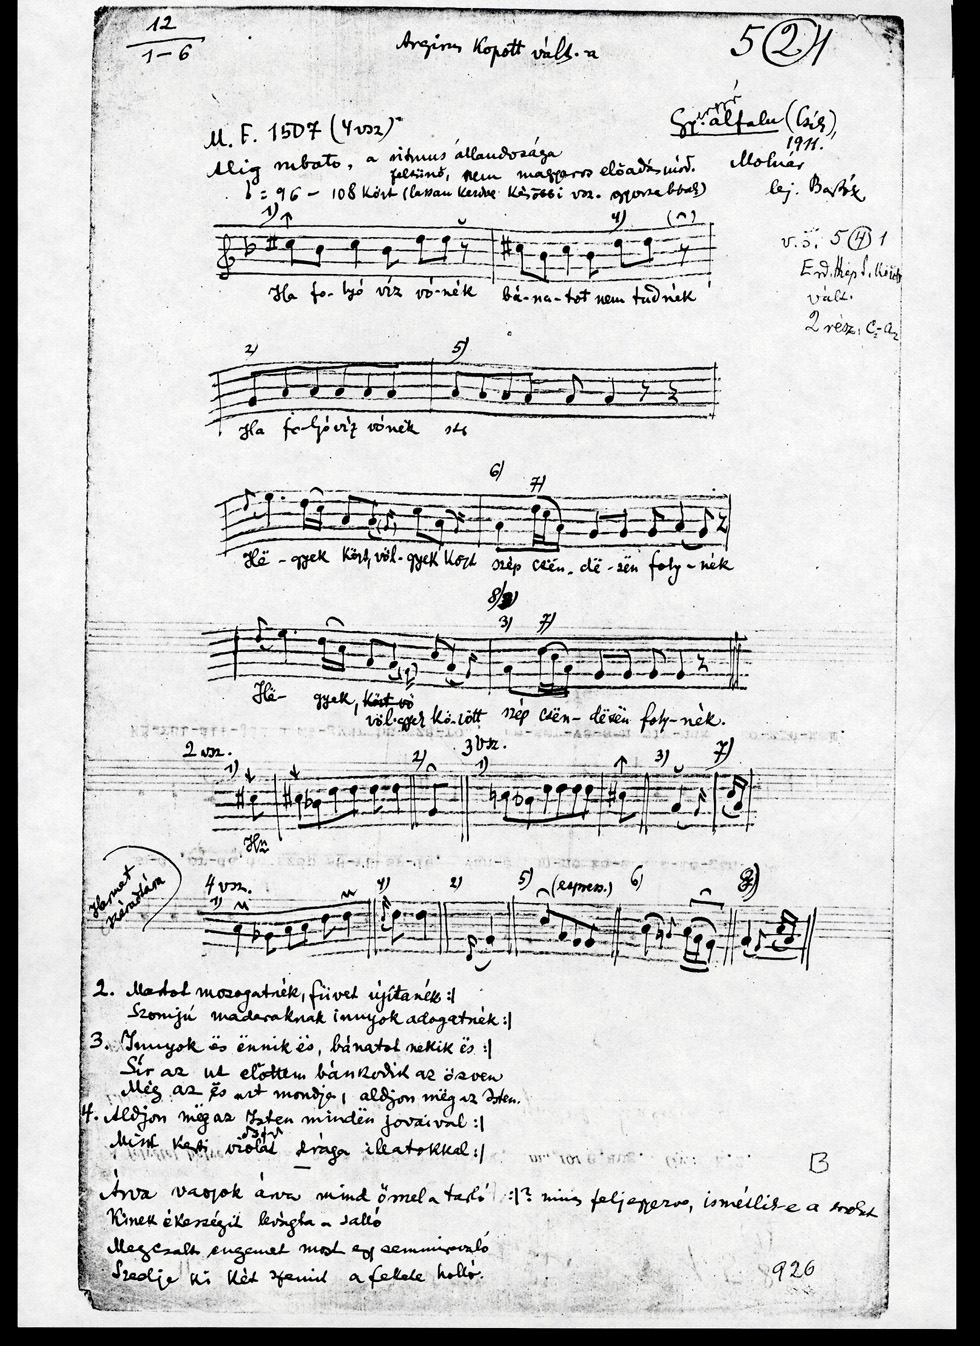 12
1-6
Argirus Kopott vált. a
5 (2) 1
M. F. 1507 (4 vsz)
Gyimes
Gy. álfalu (Csík),
1911.
Molnár
lej. Bartók
Alig rubato, a ritmus állandósága
feltünő, nem magyaros előadásmód.
= 96 - 108 Közt (lassan kezdve Későbbi vsz. gyorsabbak)
v. ö. 5 (4) 1
vált.
2 rész.
1) 4)
Ha fo-lyó víz vó-nék bá-na-tot nem tudnék
2) 5)
Ha fo-lyó víz vónék stb
6) 7)
Hë - gyek közt, völ-gyek közt szép csën-dë-sën foly-nék
8) 3) 7)
Hë- gyek, közt vö
völ-gyek kö-zött szép csën-dësën foly-nék.
2 vsz. 1) 2) 3 vsz. 1) 3) 7)
4 vsz. 1) 4) 2) 5) (espress.) 6)
Harmat
száradására
2. Martot mozogatnék, füvet újítanék :|
Szomjú madaraknak innyok adogatnék :|
3. Innyok ës ënnik ës, bánatot nekik ës :|
Sír az út előttem bánkodik az ösven
Még az ës azt mondja, áldjon mëg az Isten.
4. Áldjon mëg az Isten mindën jovaival :|
Mint kerti violát drága illatokkal :|
B
Árva vagyok árva mind örmel a tarló :|? nincs feljegyezve, ismétli-e a sorokat
Kinek ékességit levágta a salló
Megcsalt engemet most egy semmirevaló
Szedje ki két szemit a fekete holló.
926